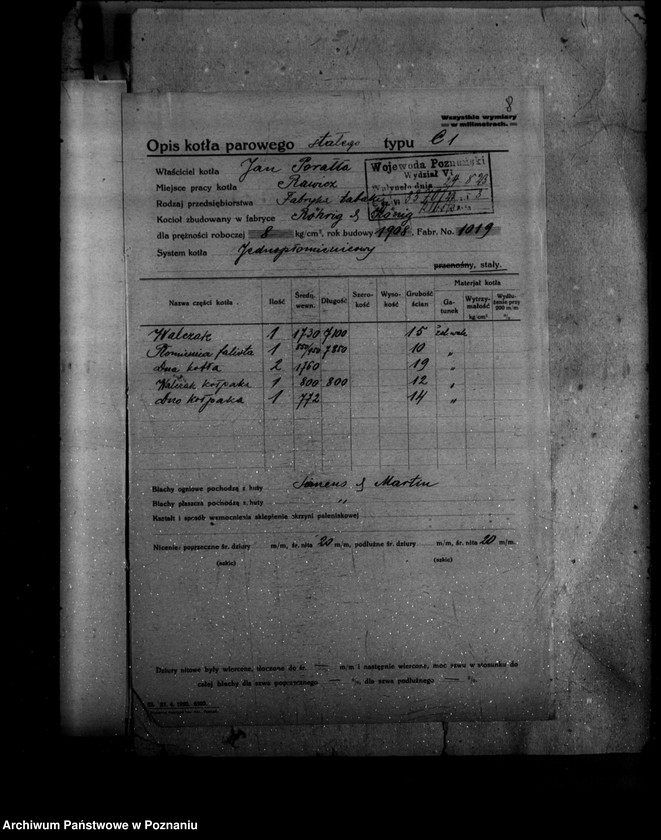 8
Wszystkie wymiary
w milimetrach.
Opis kotła parowego stałego typu C1
Właściciel kotła Jan Poralla
Miejsce pracy kotła Rawicz
Rodzaj przedsiębiorstwa Fabryka tabaki
Kocioł zbudowany w fabryce Röhrig & König
Wojewoda Poznański
Wydział V
Wpłynęło dnia
dla prężności roboczej 8 kg/cm², rok budowy 1908, Fabr. No. 1019
System kotła Jednopłomienicowy
przenośny, stały.
Nazwa części kotła Ilość Średn. wewn. Długość Szerokość Wysokość Grubość ścian Materjał kotła
Gatunek Wytrzymałość kg/cm² Wydłużenie przy 200 m/m %
Walczak 1 1730 7100 15 żel. wal.
Płomienica falista 1 7850 10 „
Dna kotła 2 1760 19 „
Walczak kołpaka 1 800 800 12 „
Dno kołpaka 1 772 14 „
Blachy ogniowe pochodzą z huty Siemens & Martin
Blachy płaszcza pochodzą z huty „
Kształt i sposób wzmocnienia sklepienia skrzyni paleniskowej
Nicenie: poprzeczne śr. dziury m/m, śr. nita 20 m/m, podłużne śr. dziury m/m, śr. nita 20 m/m.
(szkic) (szkic)
Dziury nitowe były wiercone, tłoczone do śr. — m/m i następnie wiercone, moc szwu w stosunku do
całej blachy dla szwu poprzecznego — %, dla szwu podłużnego — %.
Archiwum Państwowe w Poznaniu